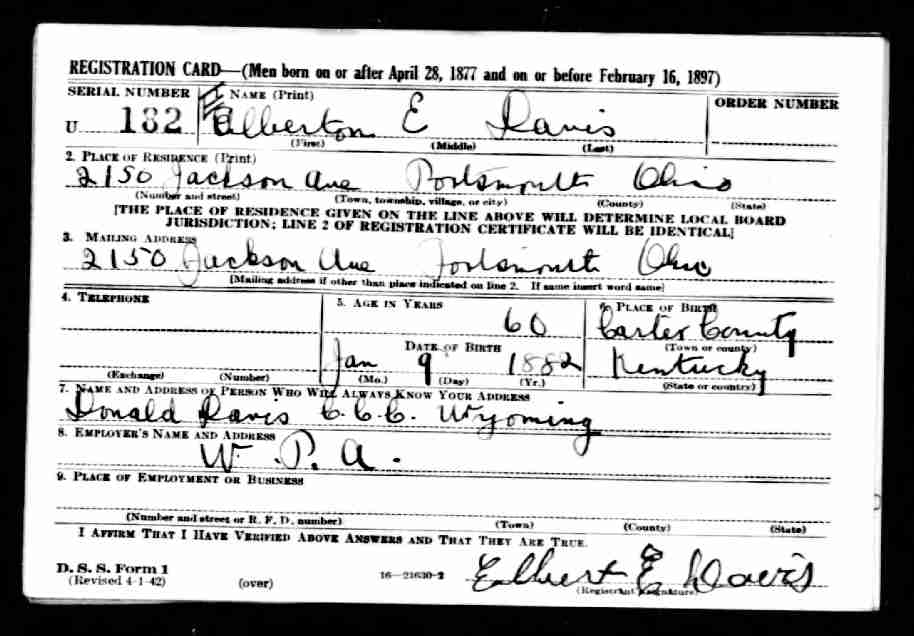 REGISTRATION CARD—(Men born on or after April 28, 1877 and on or before February 16, 1897)
SERIAL NUMBER 1. NAME (Print) ORDER NUMBER
U 182 Elberton E Davis
(First) (Middle) (Last)
2. PLACE OF RESIDENCE (Print)
2150 Jackson Ave Portsmouth Ohio
(Number and street) (Town, township, village, or city) (County) (State)
[THE PLACE OF RESIDENCE GIVEN ON THE LINE ABOVE WILL DETERMINE LOCAL BOARD
JURISDICTION; LINE 2 OF REGISTRATION CERTIFICATE WILL BE IDENTICAL]
3. MAILING ADDRESS
2150 Jackson Ave Portsmouth Ohio
[Mailing address if other than place indicated on line 2. If same insert word same]
4. TELEPHONE 5. AGE IN YEARS 6. PLACE OF BIRTH
60 Carter County
DATE OF BIRTH (Town or county)
Jan 9 1882 Kentucky
(Exchange) (Number) (Mo.) (Day) (Yr.) (State or country)
7. NAME AND ADDRESS OF PERSON WHO WILL ALWAYS KNOW YOUR ADDRESS
Donald Davis C.C.C. Wyoming
8. EMPLOYER'S NAME AND ADDRESS
W. P. A.
9. PLACE OF EMPLOYMENT OR BUSINESS
(Number and street or R. F. D. number) (Town) (County) (State)
I AFFIRM THAT I HAVE VERIFIED ABOVE ANSWERS AND THAT THEY ARE TRUE.
D. S. S. Form 1
(Revised 4-1-42) (over) 16—21630-2 Elbert E Davis
(Registrant's signature)